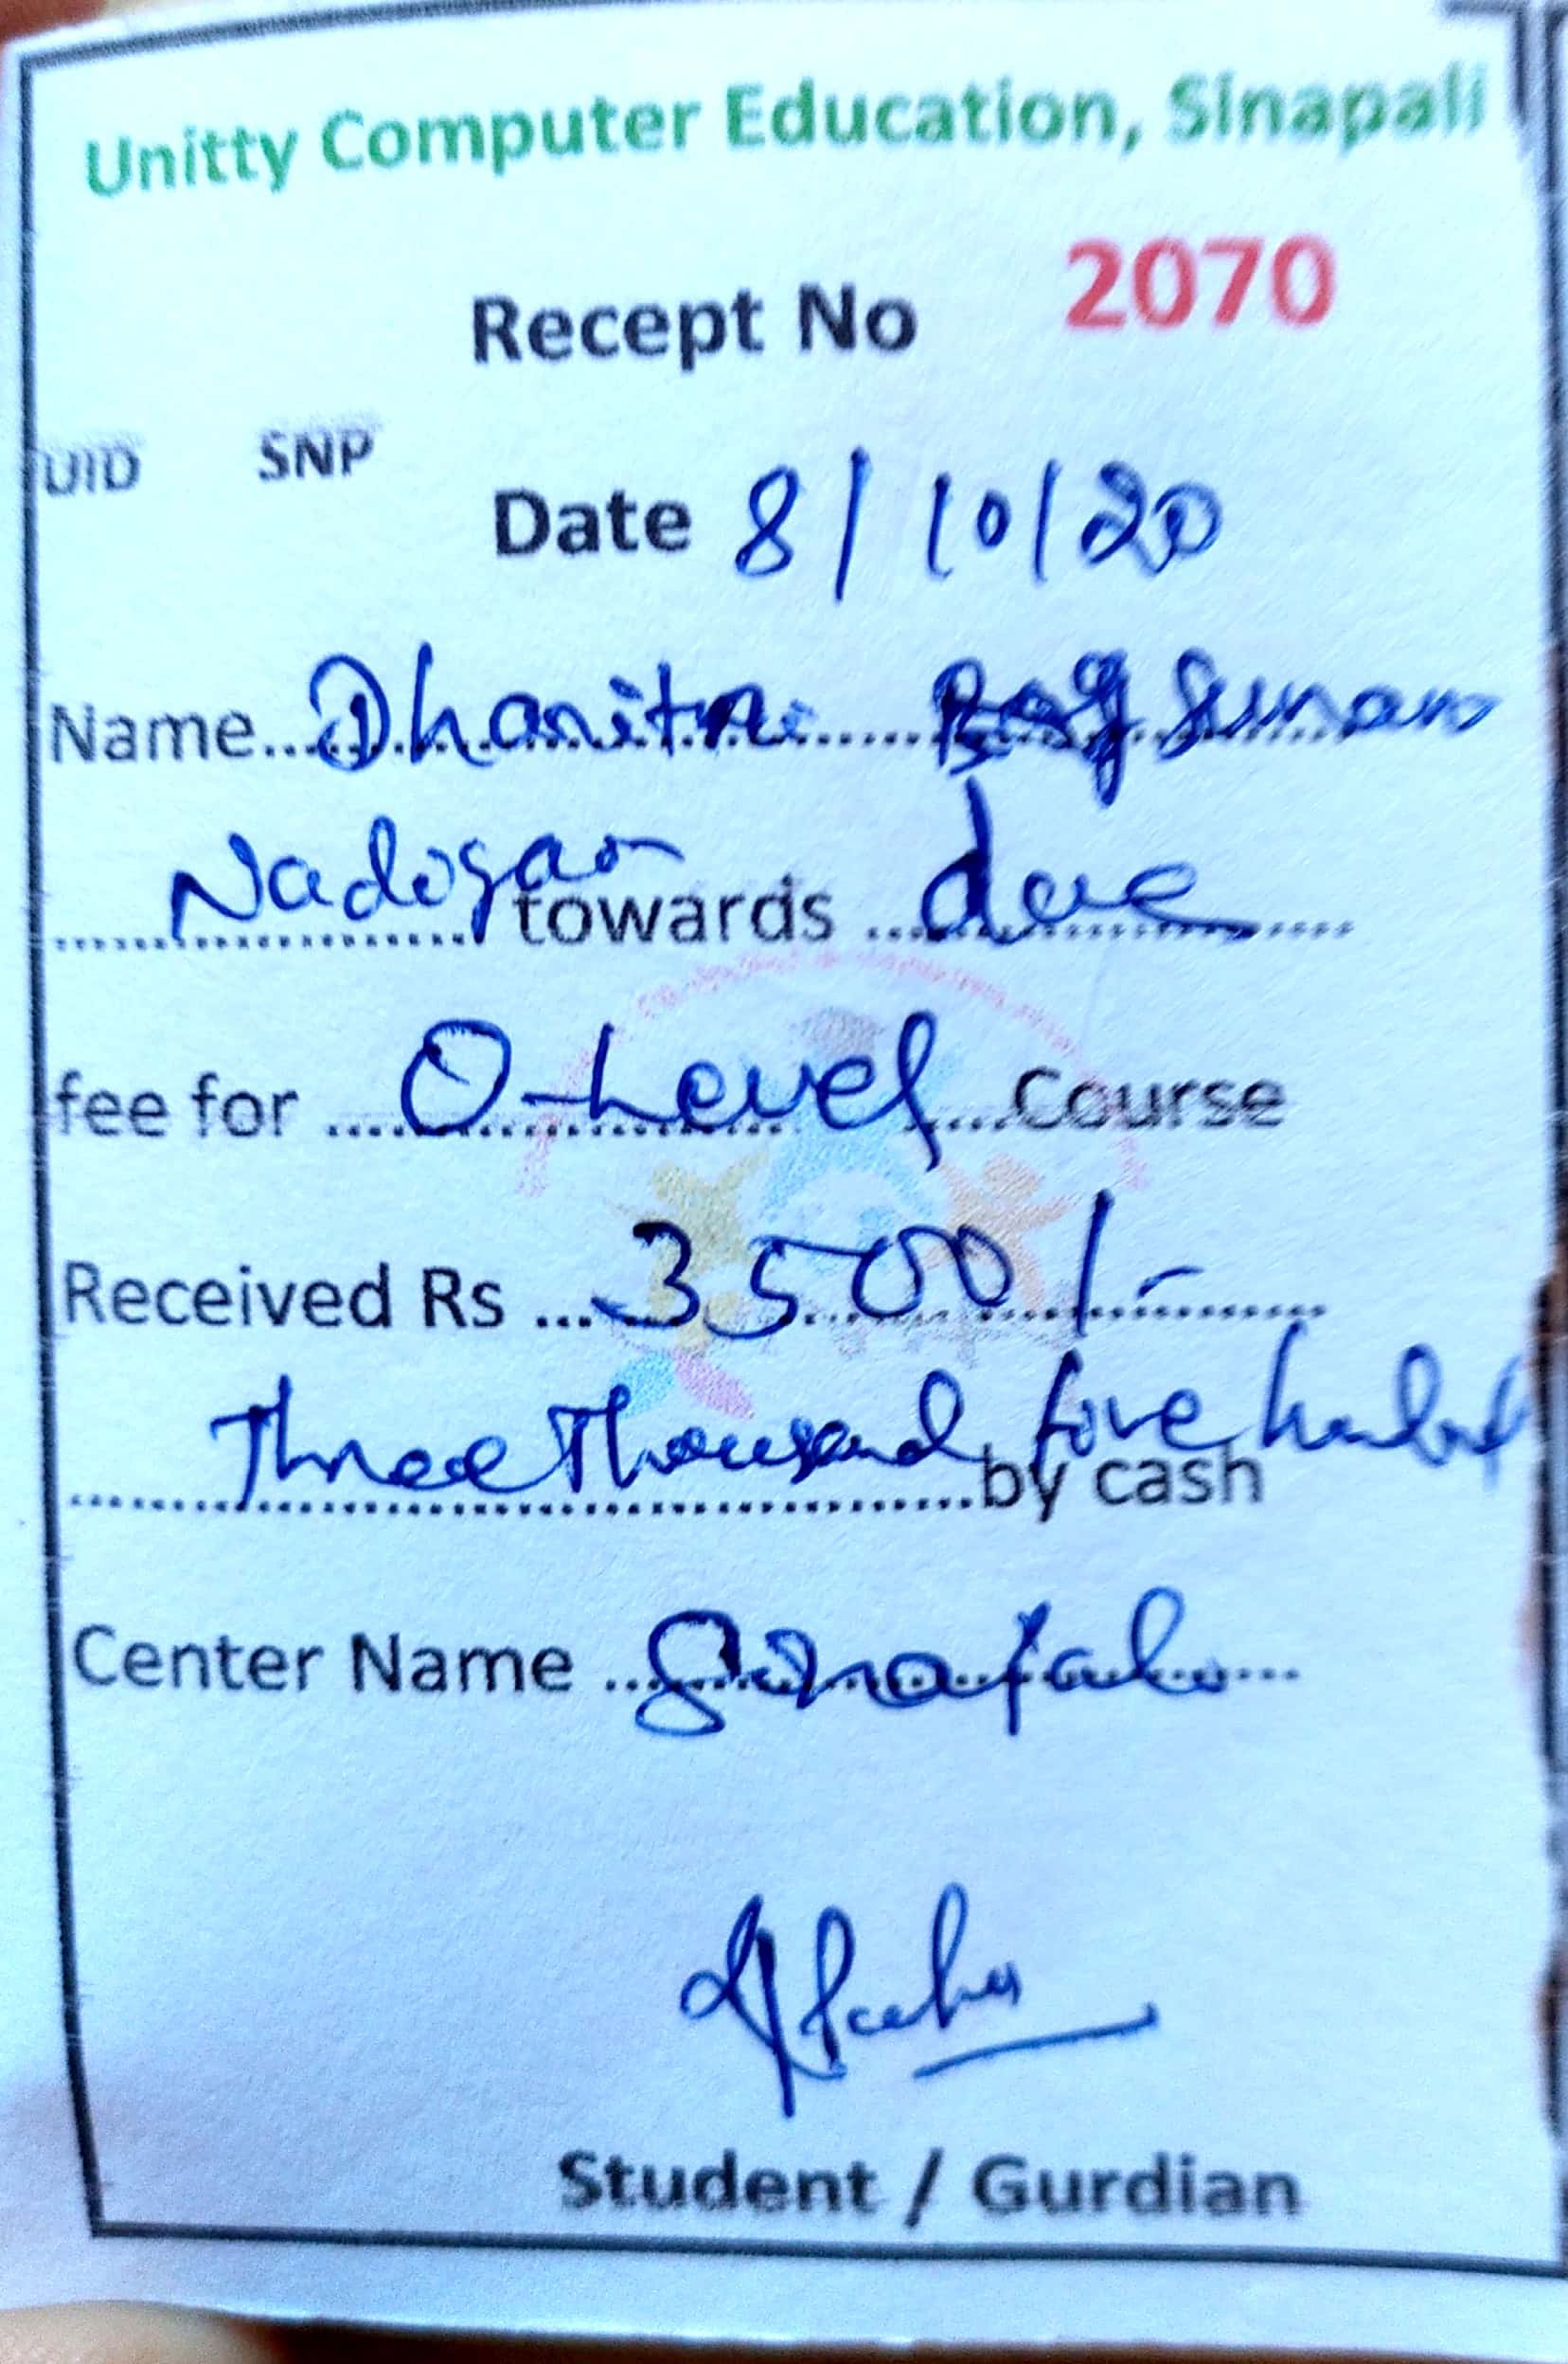 Unitty Computer Education, Sinapali
Recept No 2070
UID SNP
Date 8/10/20
Name...Dharitri Bag Sunani
Nadogao towards ...due
fee for ...O-Level...Course
Received Rs ...3500/-
Three Thousand five hundred by cash
Center Name ...Sinapali
Student / Gurdian